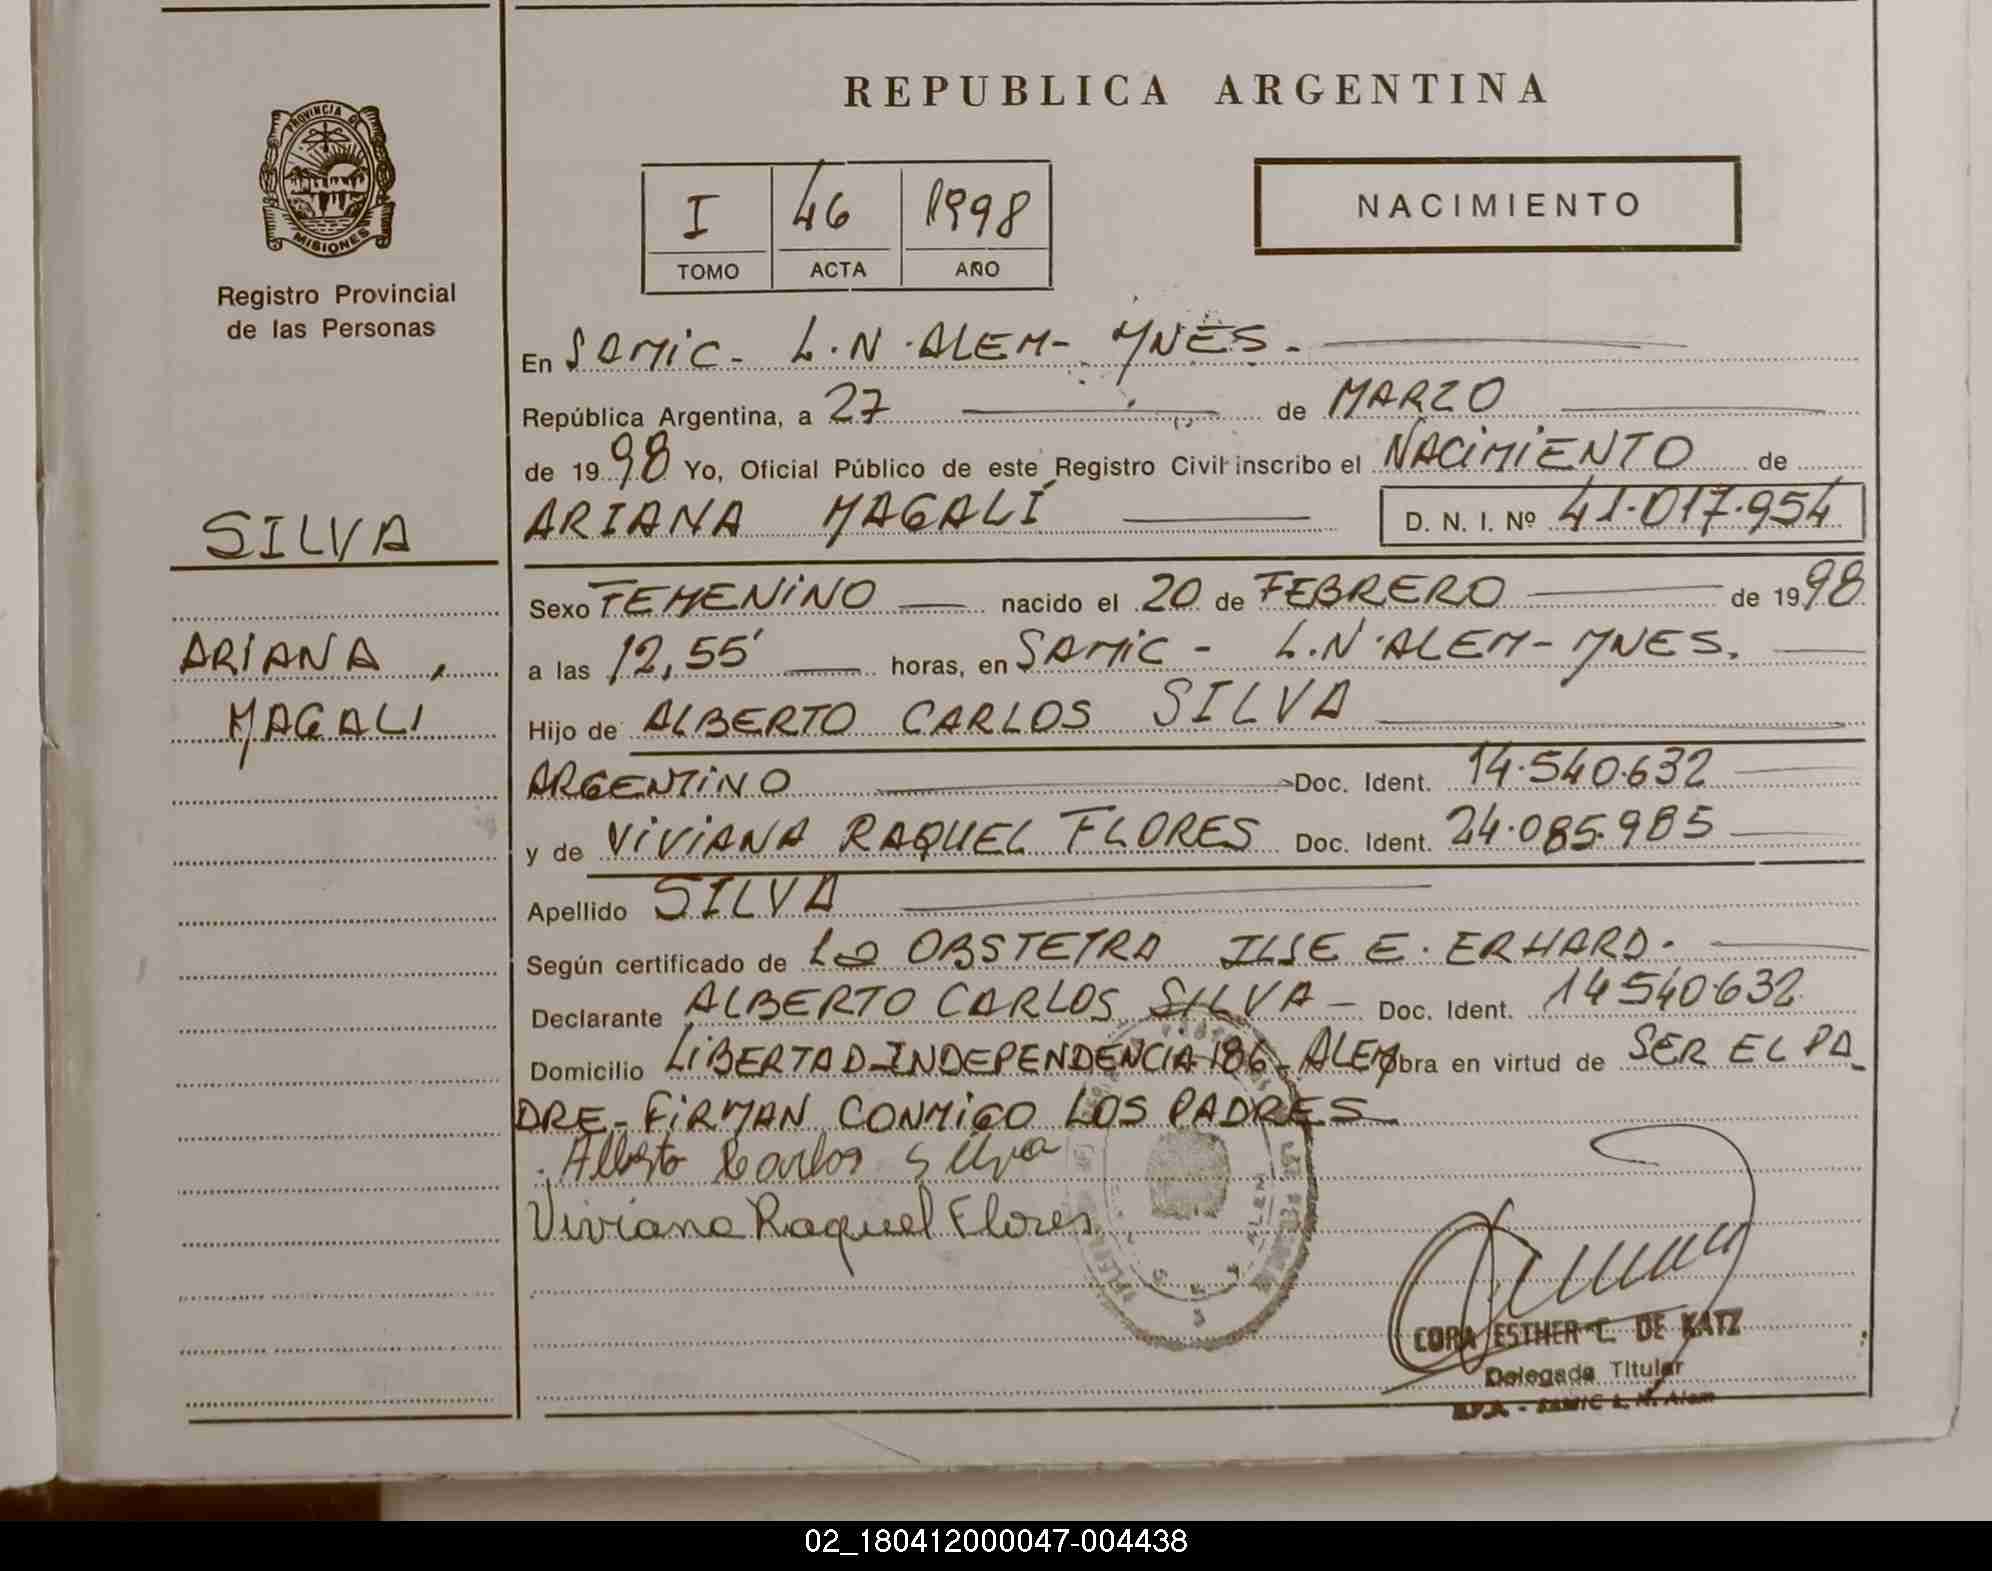 REPUBLICA ARGENTINA
PROVINCIA DE
MISIONES
Registro Provincial
de las Personas
I 46 1998
TOMO ACTA AÑO
NACIMIENTO
En SAMIC - L.N. ALEM - MNES.
República Argentina, a 27 de MARZO
de 1998 Yo, Oficial Público de este Registro Civil inscribo el NACIMIENTO de
ARIANA MAGALÍ D. N. I. Nº 41.017.954
SILVA
ARIANA,
MAGALI
Sexo FEMENINO nacido el 20 de FEBRERO de 1998
a las 12,55' horas, en SAMIC - L.N. ALEM - MNES.
Hijo de ALBERTO CARLOS SILVA
ARGENTINO Doc. Ident. 14.540.632
y de VIVIANA RAQUEL FLORES Doc. Ident. 24.085.985
Apellido SILVA
Según certificado de LA OBSTETRA ILSE E. ERHARD.
Declarante ALBERTO CARLOS SILVA - Doc. Ident. 14540.632
Domicilio LIBERTAD-INDEPENDENCIA 186-ALEM obra en virtud de SER EL PA_
DRE - FIRMAN CONMIGO LOS PADRES
Alberto Carlos Silva
Viviana Raquel Flores
CORA ESTHER C. DE KATZ
Delegada Titular
SAMIC L. N. Alem
02_180412000047-004438